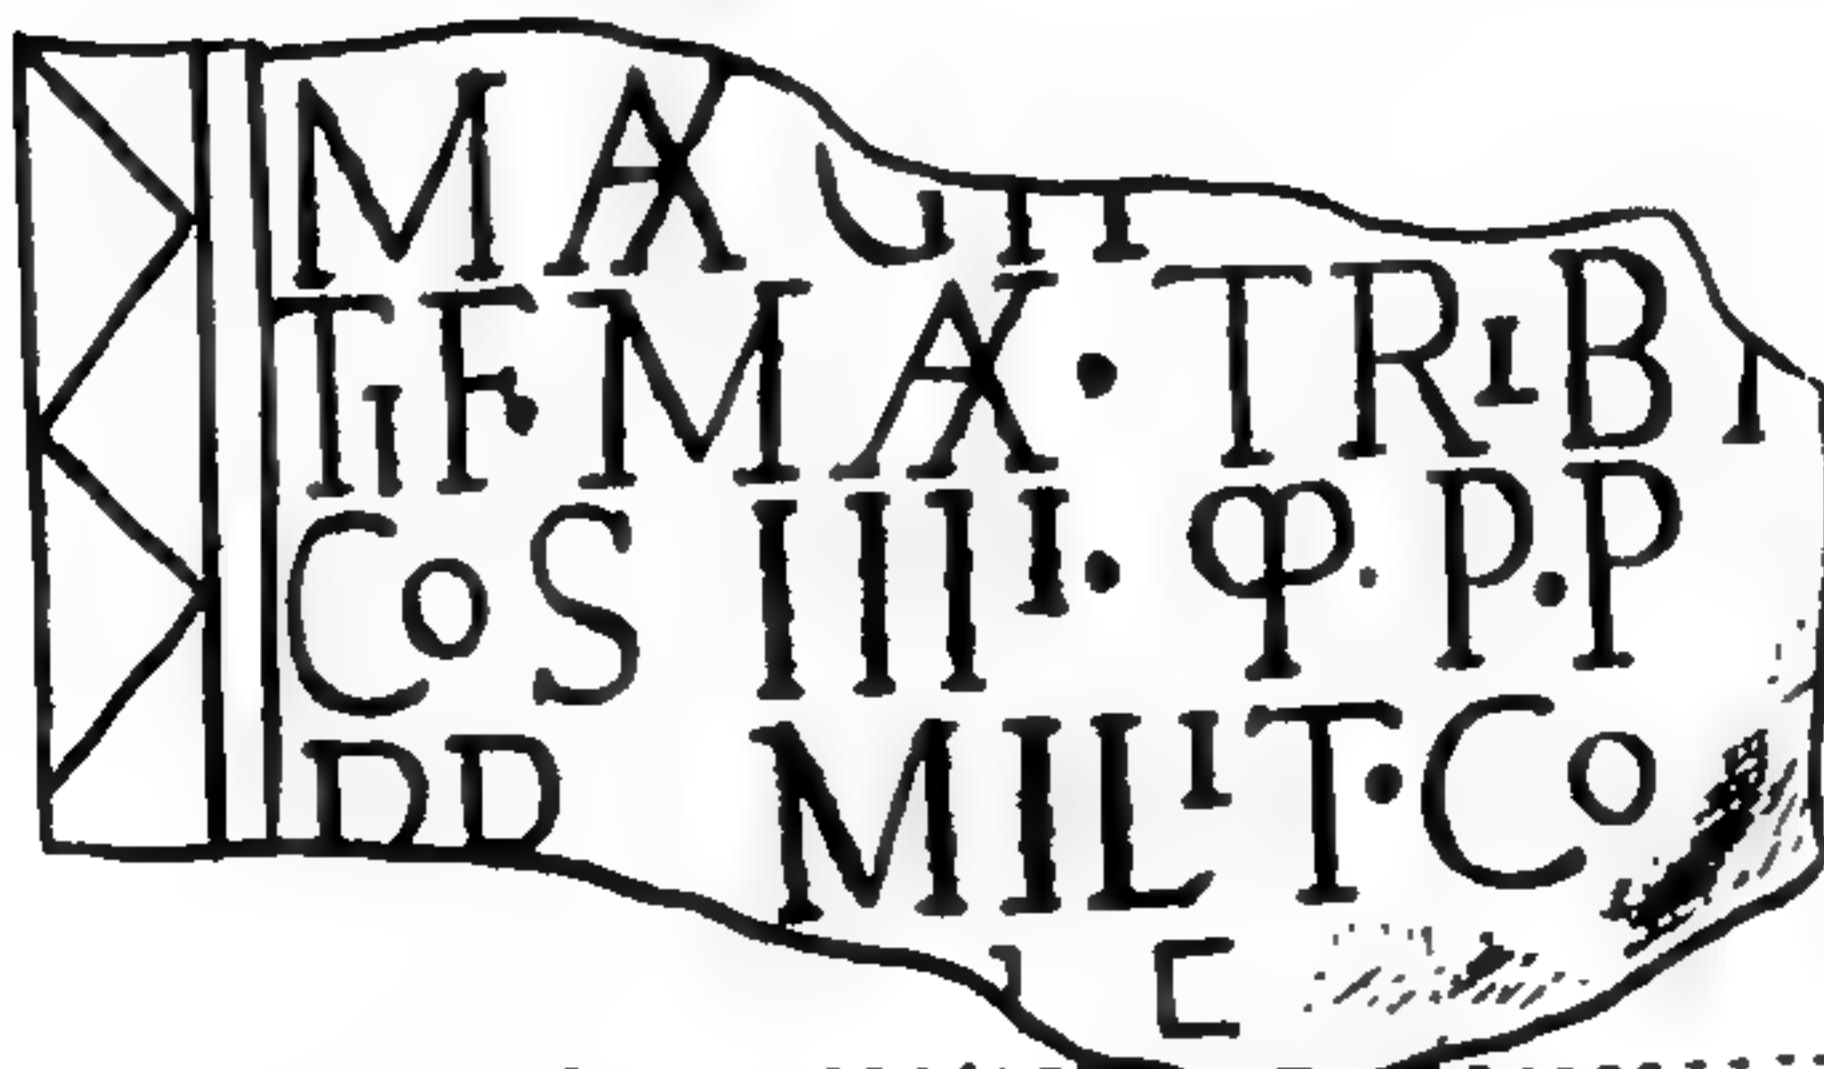 MAX
TIF MAX · TRIB
COS IIII · P · P · P
DD MILIT · CO